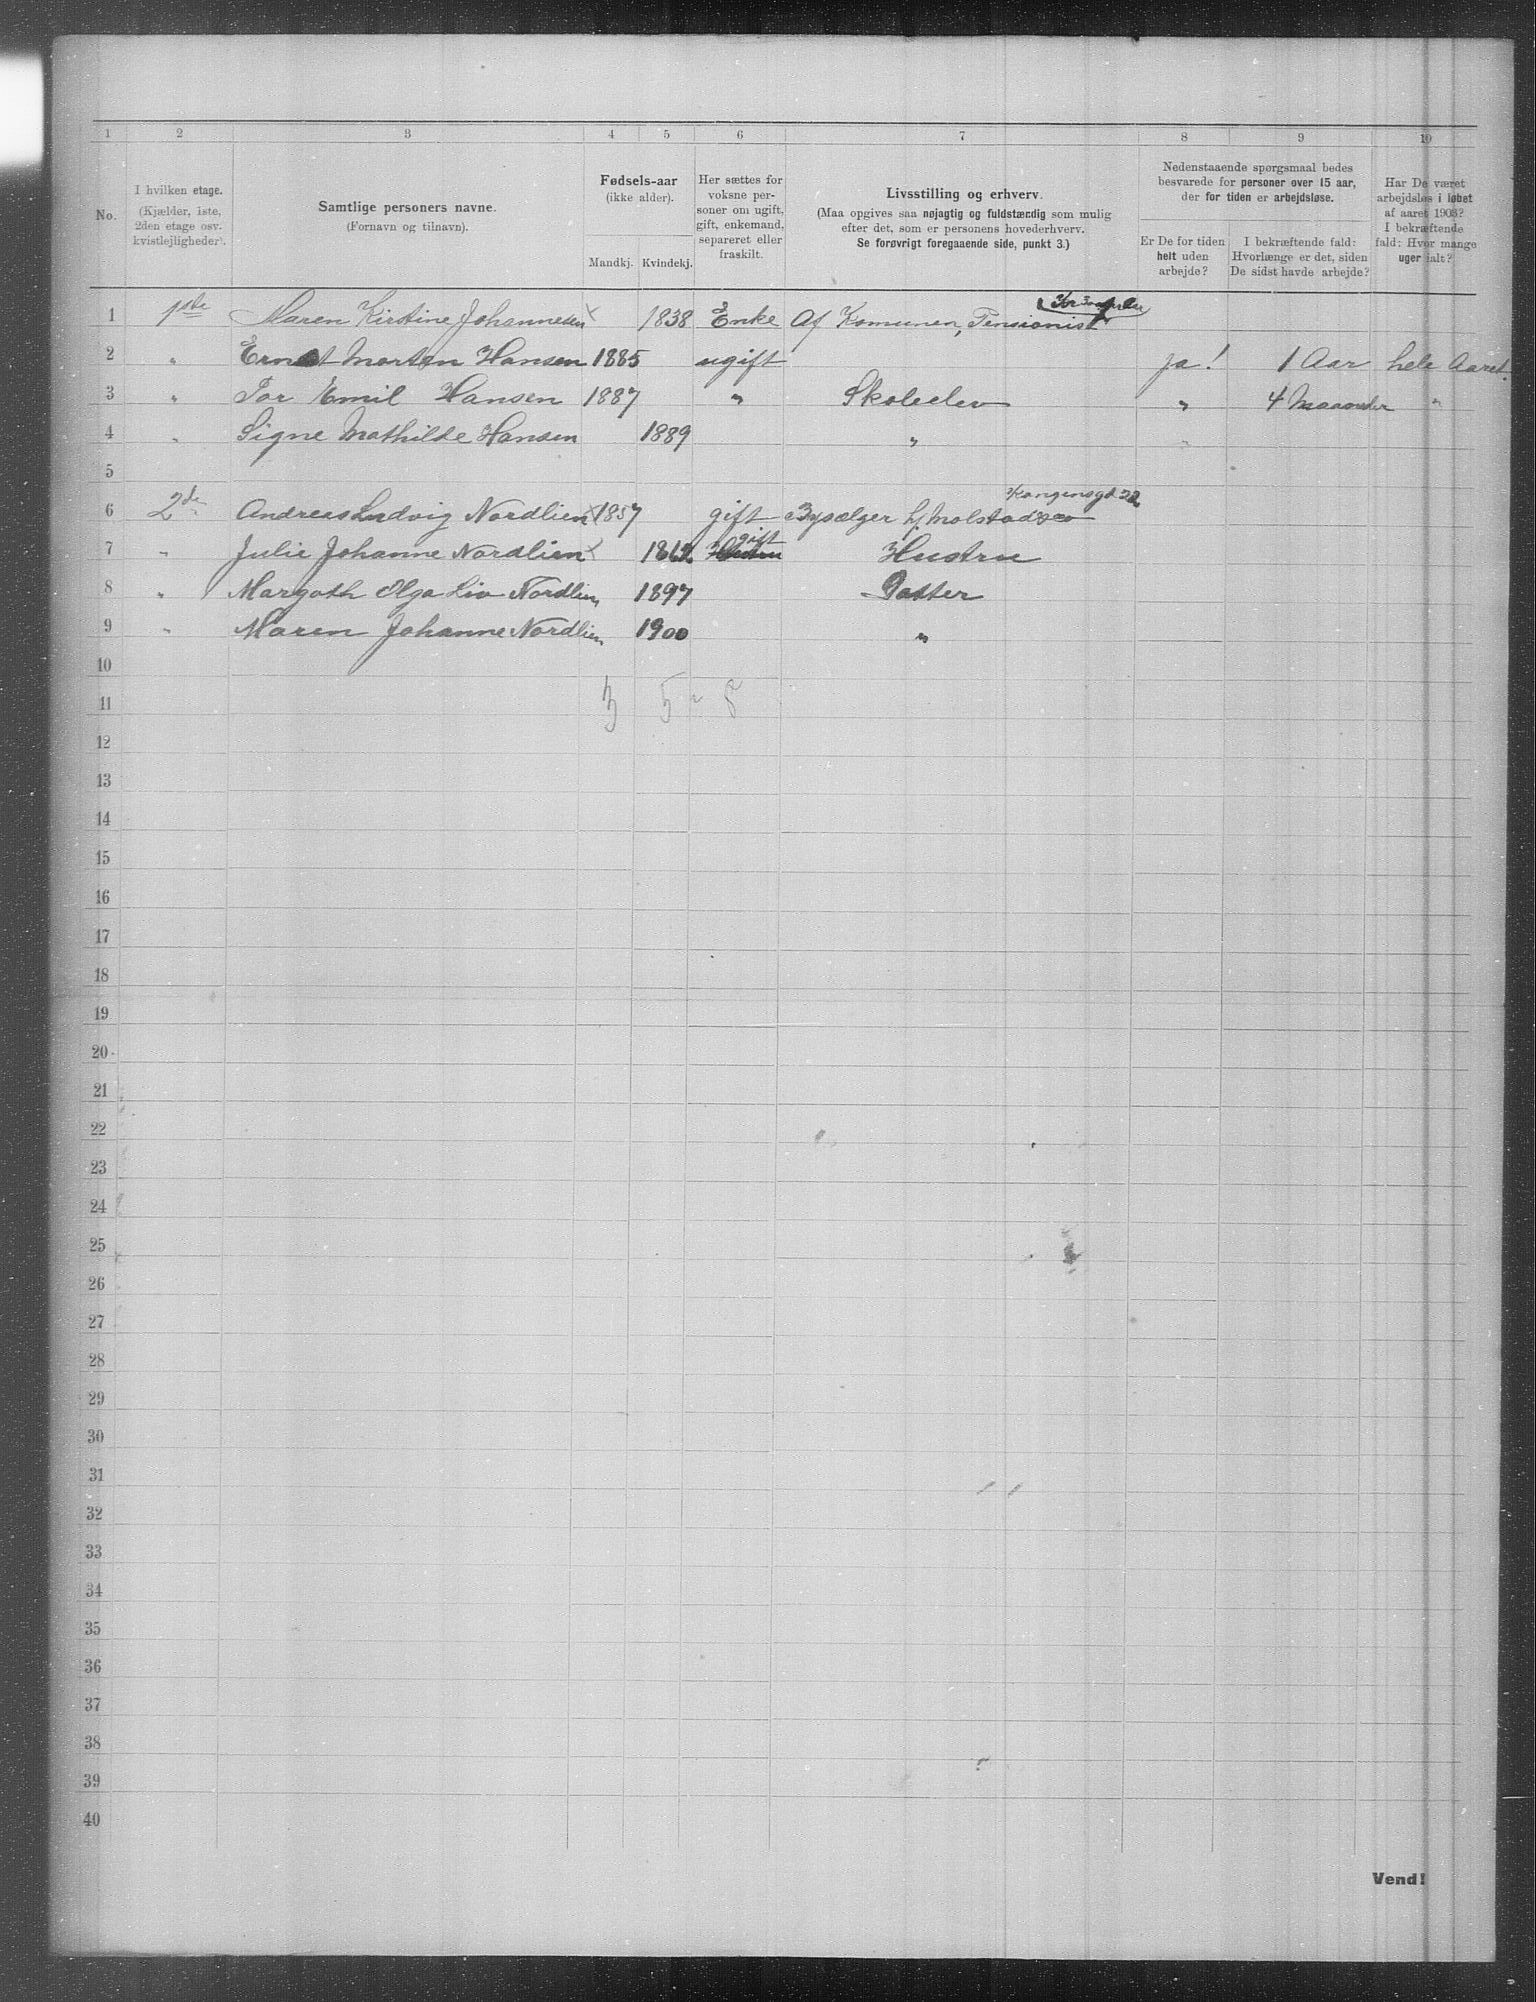 1 2 3 4 5 6 7 8 9 10
No.
I hvilken etage.
(Kjælder, 1ste,
2den etage osv.
kvistlejligheder).
Samtlige personers navne.
(Fornavn og tilnavn).
Fødsels-aar
(ikke alder).
Mandkj. Kvindekj.
Her sættes for
voksne per-
soner om ugift,
gift, enkemand,
separeret eller
fraskilt.
Livsstilling og erhverv.
(Maa opgives saa nøjagtig og fuldstændig som mulig
efter det, som er personens hovederhverv.
Se forøvrigt foregaaende side, punkt 3.)
Nedenstaaende spørgsmaal bedes
besvarede for personer over 15 aar,
der for tiden er arbejdsløse.
Er De for tiden
helt uden
arbejde?
I bekræftende fald:
Hvorlænge er det, siden
De sidst havde arbejde?
Har De været
arbejdsløs i løbet
af aaret 1903?
I bekræftende
fald: Hvor mange
uger ialt?
1 1ste Maren Kirstine Johannesen x 1838 Enke Af Komunen, Pensionist
2 " Ernst Morten Hansen 1885 ugift ja! 1 Aar hele Aaret.
3 " Tor Emil Hansen 1887 " Skoleelev " 4 Maaneder "
4 " Signe Mathilde Hansen 1889 " "
5
Kongensgd 22
6 2de Andreas Ludvig Nordlien x 1857 gift Bysælger h/ Molstad & co
gift
7 " Julie Johanne Nordlien x 1862 Hustru Hustru
8 " Margoth Olga Liv Nordlien 1897 Datter
9 " Maren Johanne Nordlien 1900 "
10
3 5 - 8
11
12
13
14
15
16
17
18
19
20
21
22
23
24
25
26
27
28
29
30
31
32
33
34
35
36
37
38
39
40
Vend!